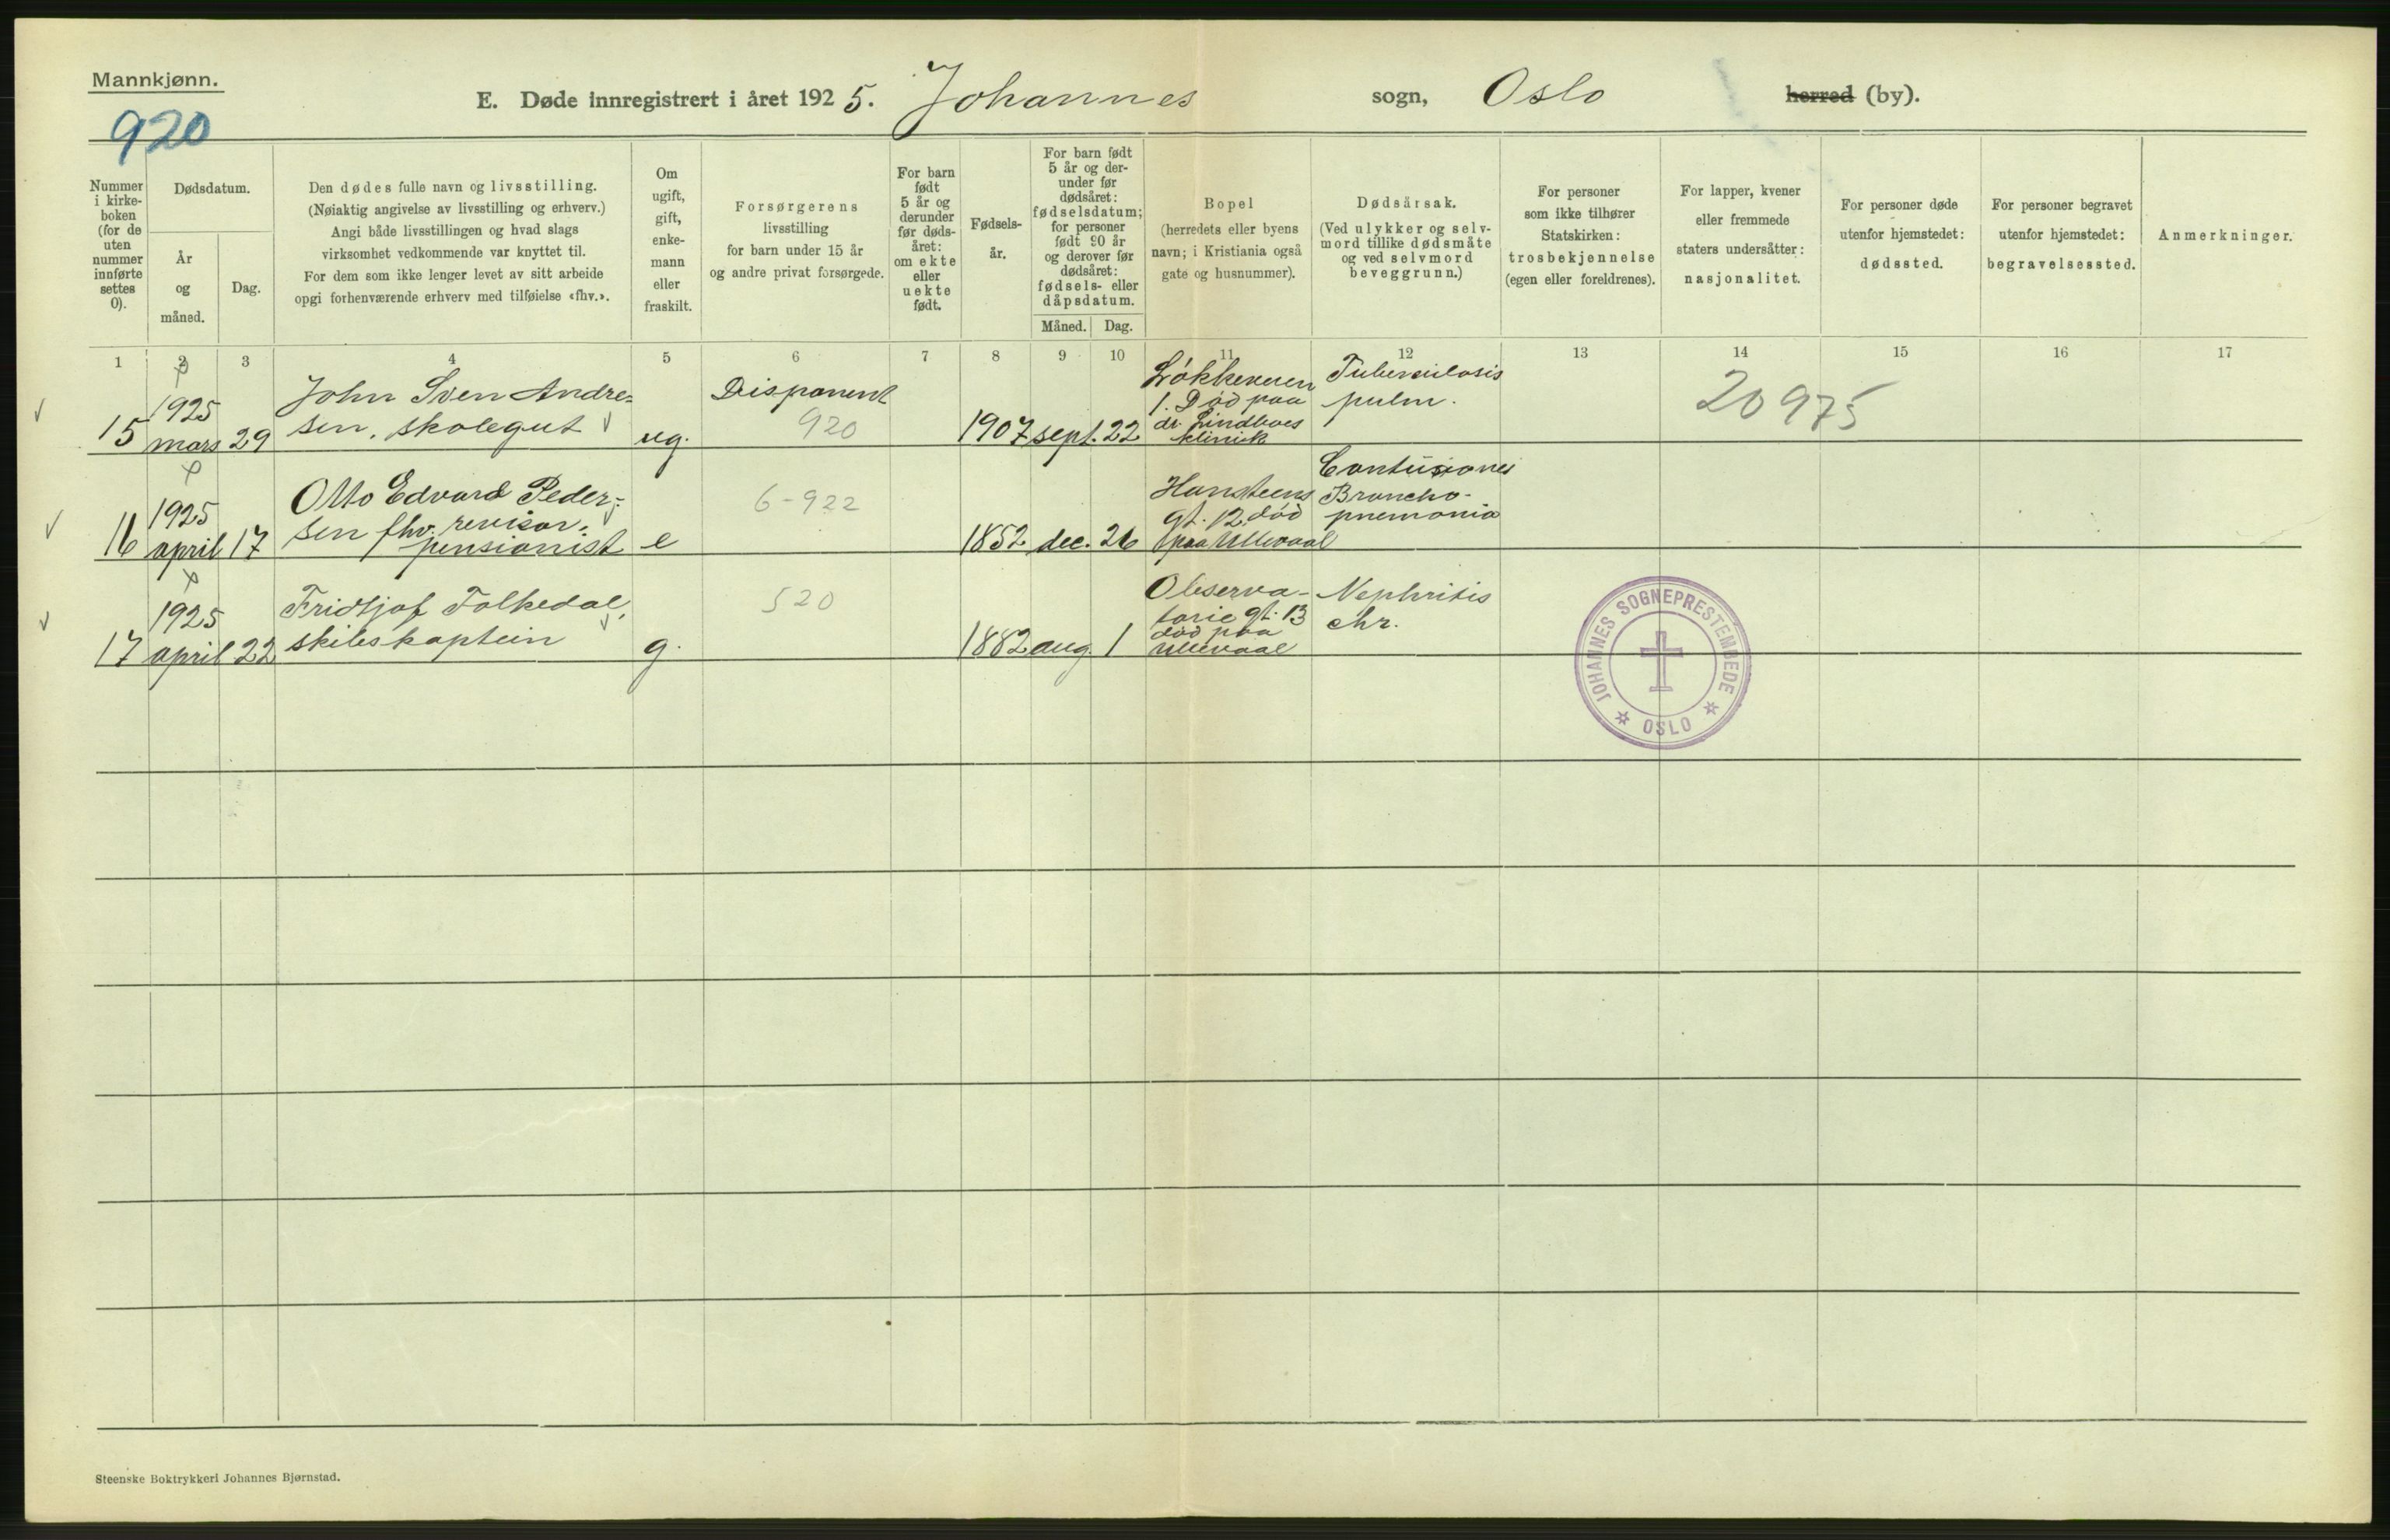 Mannkjønn.
920
E. Døde innregistrert i året 1925. Johannes sogn, Oslo herred (by).
Nummer
i kirke-
boken
(for de
uten
nummer
innførte
settes
0).
Dødsdatum.
År
og
måned.
Dag.
Den dødes fulle navn og livsstilling.
(Nøiaktig angivelse av livsstilling og erhverv.)
Angi både livsstillingen og hvad slags
virksomhet vedkommende var knyttet til.
For dem som ikke lenger levet av sitt arbeide
opgi forhenværende erhverv med tilføielse «fhv.».
Om
ugift,
gift,
enke-
mann
eller
fraskilt.
Forsørgerens
livsstilling
for barn under 15 år
og andre privat forsørgede.
For barn
født
5 år og
derunder
før døds-
året:
om ekte
eller
uekte
født.
Fødsels-
år.
For barn født
5 år og der-
under før
dødsåret:
fødselsdatum;
for personer
født 90 år
og derover før
dødsåret:
fødsels- eller
dåpsdatum.
Måned. Dag.
Bopel
(herredets eller byens
navn; i Kristiania også
gate og husnummer).
Dødsårsak.
(Ved ulykker og selv-
mord tillike dødsmåte
og ved selvmord
beveggrunn.)
For personer
som ikke tilhører
Statskirken:
trosbekjennelse
(egen eller foreldrenes).
For lapper, kvener
eller fremmede
staters undersåtter:
nasjonalitet.
For personer døde
utenfor hjemstedet:
dødssted.
For personer begravet
utenfor hjemstedet:
begravelsessted.
Anmerkninger.
1 2 3 4 5 6 7 8 9 10 11 12 13 14 15 16 17
15
1925
mars 29
John Sven Andre=
sen, skolegut
ug.
Disponent
920
1907 sept. 22
Løkkeveien
1. Død paa
dr. Lindboes
klinick
Tuberculosis
pulm.
20975
16
1925
april 17
Otto Edvard Peder-
sen fhv. revisor,
pensionist
e
6-922
1852 dec. 26
Hansteens
gt. 12. død
paa Ullevaal
Contusiones
Broncho-
pnemonia
17
1925
april 22
Fridtjof Folkedal,
skibskaptein
g.
520
1882 aug. 1
Observa-
torie gt. 13
død paa
Ullevaal
Nephritis
chr.
JOHANNES SOGNEPRESTEMBEDE
OSLO
Steenske Boktrykkeri Johannes Bjørnstad.